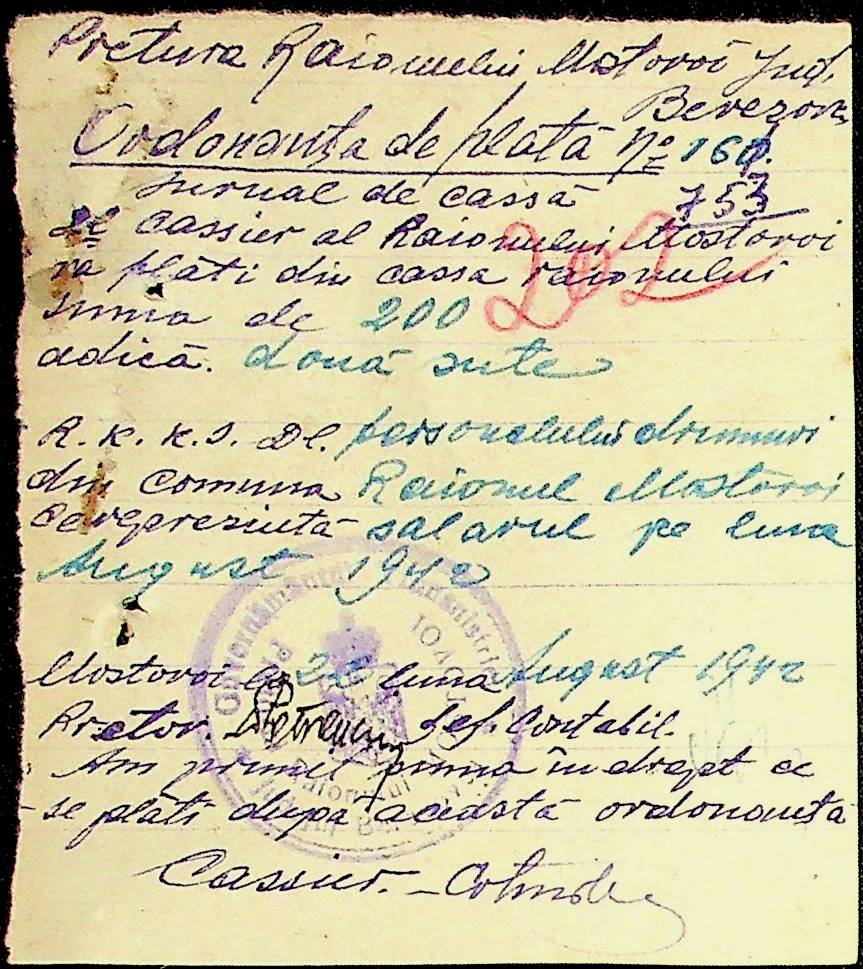 Pretura Raionului Mostovoi Jud.
Berezovca
Ordonanța de plată No 160.
Jurnal de cassă 753
Dl Cassier al Raionului Mostovoi
va plăti din cassa raionului
202
suma de 200
adică. două sute
R. K. K. S. Dl. personalului drumuri
din Comuna Raionul Mostovoi
ce reprezintă salarul pe luna
August 1942
Mostovoi luna August 1942
Pretor. Șef. Contabil.
Am primit suma în drept ce
se plăti după această ordonanță
Cassier.